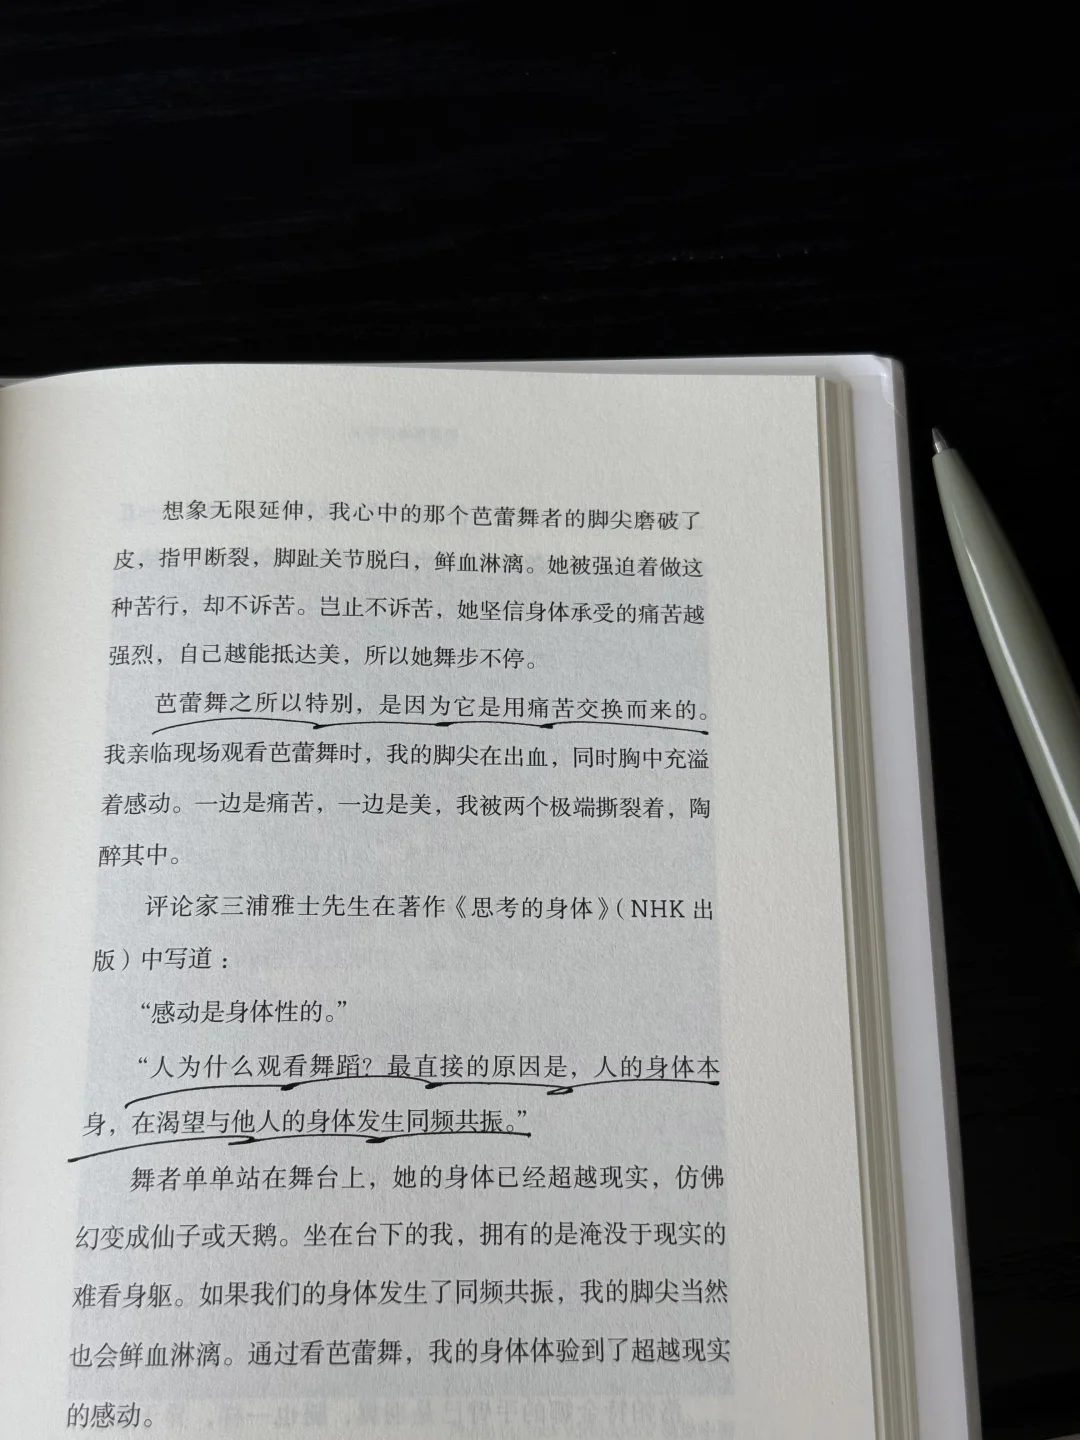 想象无限延伸，我心中的那个芭蕾舞者的脚尖磨破了
皮，指甲断裂，脚趾关节脱臼，鲜血淋漓。她被强迫着做这
种苦行，却不诉苦。岂止不诉苦，她坚信身体承受的痛苦越
强烈，自己越能抵达美，所以她舞步不停。
芭蕾舞之所以特别，是因为它是用痛苦交换而来的。
我亲临现场观看芭蕾舞时，我的脚尖在出血，同时胸中充溢
着感动。一边是痛苦，一边是美，我被两个极端撕裂着，陶
醉其中。
评论家三浦雅士先生在著作《思考的身体》（NHK 出
版）中写道：
“感动是身体性的。”
“人为什么观看舞蹈？最直接的原因是，人的身体本
身，在渴望与他人的身体发生同频共振。”
舞者单单站在舞台上，她的身体已经超越现实，仿佛
幻变成仙子或天鹅。坐在台下的我，拥有的是淹没于现实的
难看身躯。如果我们的身体发生了同频共振，我的脚尖当然
也会鲜血淋漓。通过看芭蕾舞，我的身体体验到了超越现实
的感动。